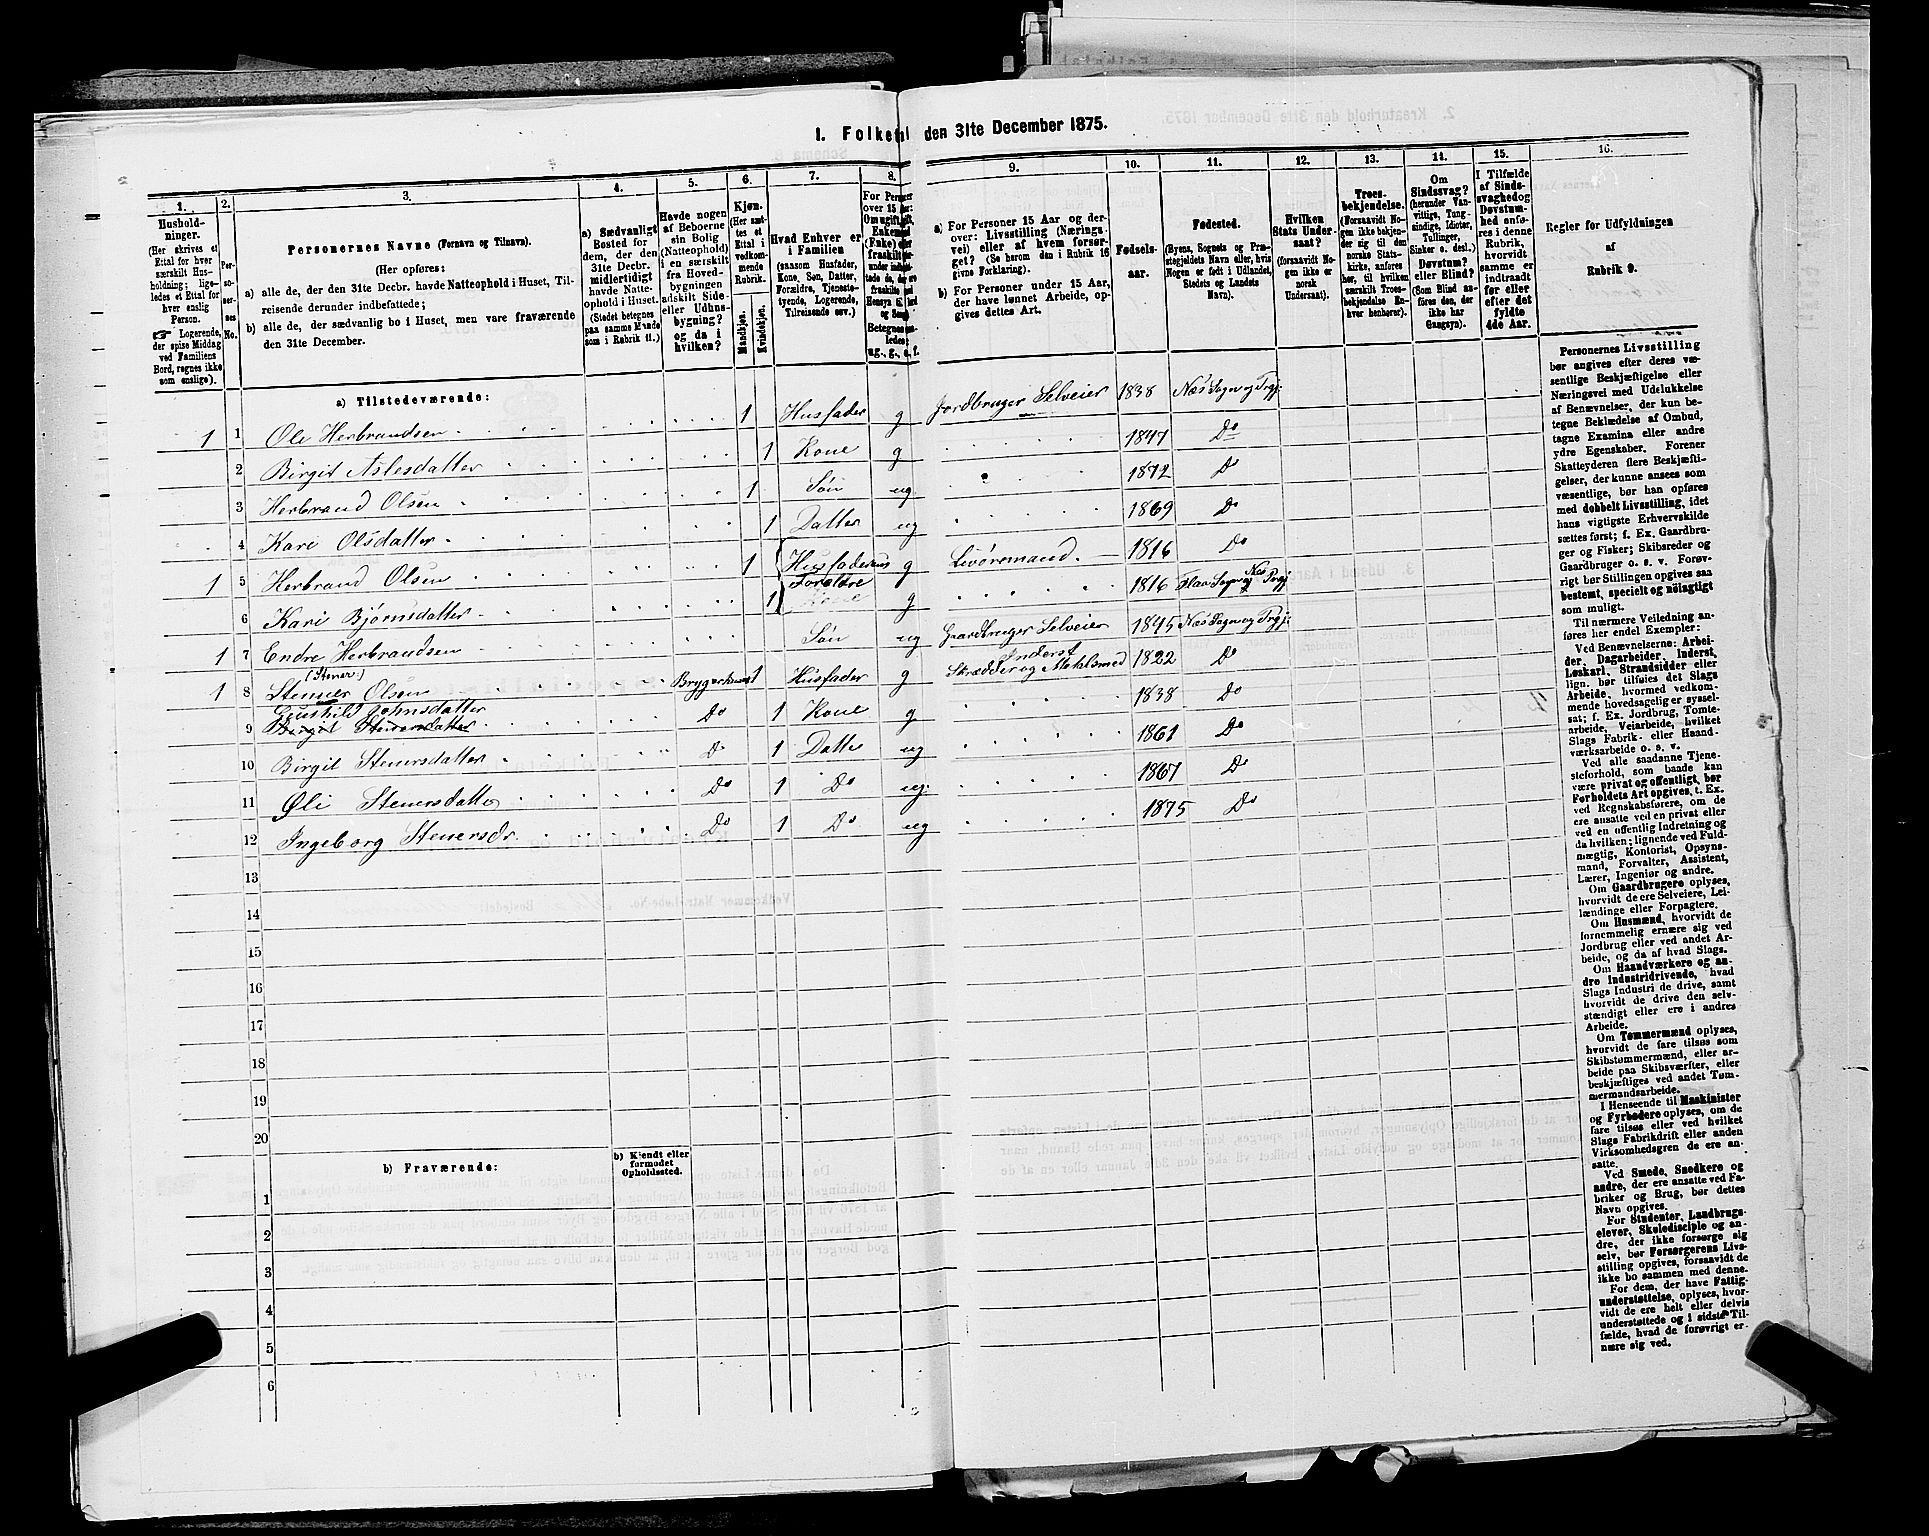 1. Folketal den 31te December 1875.
1. 2. 3. 4. 5. 6. 7. 8. 9. 10. 11. 12. 13. 14. 15. 16.
Hushold-
ninger.
(Her skrives et
Ettal for hver
særskilt Hus-
holdning; lige-
ledes et Ettal for
hver enslig
Person.
☞ Logerende,
der spise Middag
ved Familiens
Bord, regnes ikke
som enslige).
Per-
so-
ner-
nes
No.
Personernes Navne (Fornavn og Tilnavn).
(Her opføres:
a) alle de, der den 31te Decbr. havde Natteophold i Huset, Til-
reisende derunder indbefattede;
b) alle de, der sædvanlig bo i Huset, men vare fraværende
den 31te December.
a) Sædvanligt
Bosted for
dem, der den
31te Decbr.
midlertidigt
havde Natte-
ophold i Huset.
(Stedet betegnes
paa samme Maade
som i Rubrik 11.)
Havde nogen
af Beboerne
sin Bolig
(Natteophold)
i en særskilt
fra Hoved-
bygningen
adskilt Side-
eller Udhus-
bygning?
og da i
hvilken?
Kjøn.
(Her sæt-
tes et
Ettal i
vedkom-
mende
Rubrik.
Mandkjøn.
Kvindekjøn.
Hvad Enhver er
i Familien
(saasom Husfader,
Kone, Søn, Datter,
Forældre, Tjeneste-
tyende, Logerende,
Tilreisende osv.)
a) For Personer 15 Aar og der-
over: Livsstilling (Nærings-
vei) eller af hvem forsør-
get? (Se herom den i Rubrik 16
givne Forklaring).
b) For Personer under 15 Aar,
der have lønnet Arbeide, op-
gives dettes Art.
Fødsels-
aar.
Fødested.
(Byens, Sognets og Præ-
stegjeldets Navn eller, hvis
Nogen er født i Udlandet,
Stedets og Landets
Navn).
Hvilken
Stats Under-
saat?
(forsaavidt No-
gen ikke er
norsk
Undersaat).
Troes-
bekjendelse.
(Forsaavidt No-
gen ikke bekjen-
der sig til den
norske Stats-
kirke, anføres
her, til hvilken
særskilt Troes-
bekjendelse En-
hver henhører).
Om
Sindssvag?
(herunder Van-
vittige, Tung-
sindige, Idioter,
Tullinger,
Sinker o. desl.)
Døvstum?
eller Blind?
(Som Blind an-
føres den, der
ikke har
Gangsyn).
I Tilfælde
af Sinds-
svaghed og
Døvstum-
hed anfø-
res i denne
Rubrik,
hvorvidt
samme er
indtraadt
før eller
efter det
fyldte
4de Aar.
Regler for Udfyldningen
af
Rubrik 9.
a) Tilstedeværende:
1 1 Ole Herbrandsen 1 Husfader g Jordbruger Selveier 1838 Næs Sogn og Prgj:
2 Birgit Aslesdatter 1 Kone g 1847 Do
3 Herbrand Olsen 1 Søn ug. 1872 Do
4 Kari Olsdatter 1 Datter ug 1869 Do
1 5 Herbrand Olsen 1 Husfaderens Forældre g Livøremand. 1816 Do
6 Kari Bjørnsdatter 1 Kone g 1816 Flaa Sogn og Næs Prgj
1 7 Endre Herbrandsen Søn ug Gaardbruger Selveier 1845 Næs Sogn og Prgj:
(Stener) Inderst
1 8 Stenuer Olsen Bryggerhuset 1 Husfader g Skrædder og Mehlsmed 1822 Do
Gunhild Johnsdatter
9 Birgit Stenersdatter Do 1 Kone g 1838 Do
10 Birgit Stenersdatter Do 1 Datter ug 1861 Do
11 Øli Stenersdatter Do 1 Do ug. 1867 Do
12 Ingeborg Stenersdr. Do 1 Do ug 1875 Do
13
14
15
16
17
18
19
20
b) Fraværende:
b) Kjendt eller
formodet
Opholdssted.
1
2
3
4
5
6
Personernes Livsstilling
bør angives efter deres væ-
sentlige Beskjæftigelse eller
Næringsvei med Udelukkelse
af Benævnelser, der kun be-
tegne Beklædelse af Ombud,
tagne Examina eller andre
ydre Egenskaber. Forener
Skatteyderen flere Beskjæfti-
gelser, der kunne ansees som
væsentlige, bør han opføres
med dobbelt Livsstilling, idet
hans vigtigste Erhvervskilde
sættes først; f. Ex. Gaardbru-
ger og Fisker; Skibsreder og
Gaardbruger o. s. v. Forøv-
rigt bør Stillingen opgives saa
bestemt, specielt og nøiagtigt
som muligt.
Til nærmere Veiledning an-
føres her endel Exempler:
Ved Benævnelserne: Arbei-
der, Dagarbeider, Inderst,
Løskarl, Strandsidder eller
lign. bør tilføies det Slags
Arbeide, hvormed vedkom-
mende hovedsagelig er syssel-
sat; f. Ex. Jordbrug, Tomte-
arbeide, Veiarbeide, hvilket
Slags Fabrik- eller Haand-
værksarbeide o. s. v.
Ved alle saadanne Tjene-
steforhold, som baade kan
være privat og offentligt, bør
Forholdets Art opgives, t. Ex.
ved Regnskabsførere, om de
ere ansatte ved en privat eller
ved en offentlig Indretning og
da hvilken; lignende ved Fuld-
mægtig, Kontorist, Opsyns-
mand, Forvalter, Assistent,
Lærer, Ingeniør og andre.
Om Gaardbrugere oplyses,
hvorvidt de ere Selveiere, Lei-
lændinge eller Forpagtere.
Om Husmænd, hvorvidt de
fornemmelig ernære sig ved
Jordbrug eller ved andet Ar-
beide, og da af hvad Slags.
Om Haandværkere og an-
dre Industridrivende, hvad
Slags Industri de drive, samt
hvorvidt de drive den selv-
stændigt eller ere i andres
Arbeide.
Om Tømmermænd oplyses,
hvorvidt de fare tilsøs som
Skibstømmermænd, eller ar-
beide paa Skibsværfter, eller
beskjæftiges ved andet Tøm-
mermandsarbeide.
I Henseende til Maskinister
og Fyrbødere oplyses, om de
fare tilsøs eller ved hvilket
Slags Fabrikdrift eller anden
Virksomhedsgren de ere an-
satte.
Ved Smede, Snedkere og
andre, der ere ansatte ved Fa-
briker og Brug, bør dettes
Navn opgives.
For Studenter, Landbrugs-
elever, Skoledisciple og an-
dre, der ikke forsørge sig
selv, bør Forsørgerens Livs-
stilling opgives, forsaavidt de
ikke bo sammen med denne.
For dem, der have Fattig-
understøttelse, oplyses, hvor-
vidt de ere helt eller delvis
understøttede og i sidste Til-
fælde, hvad de forøvrigt er-
nære sig ved.